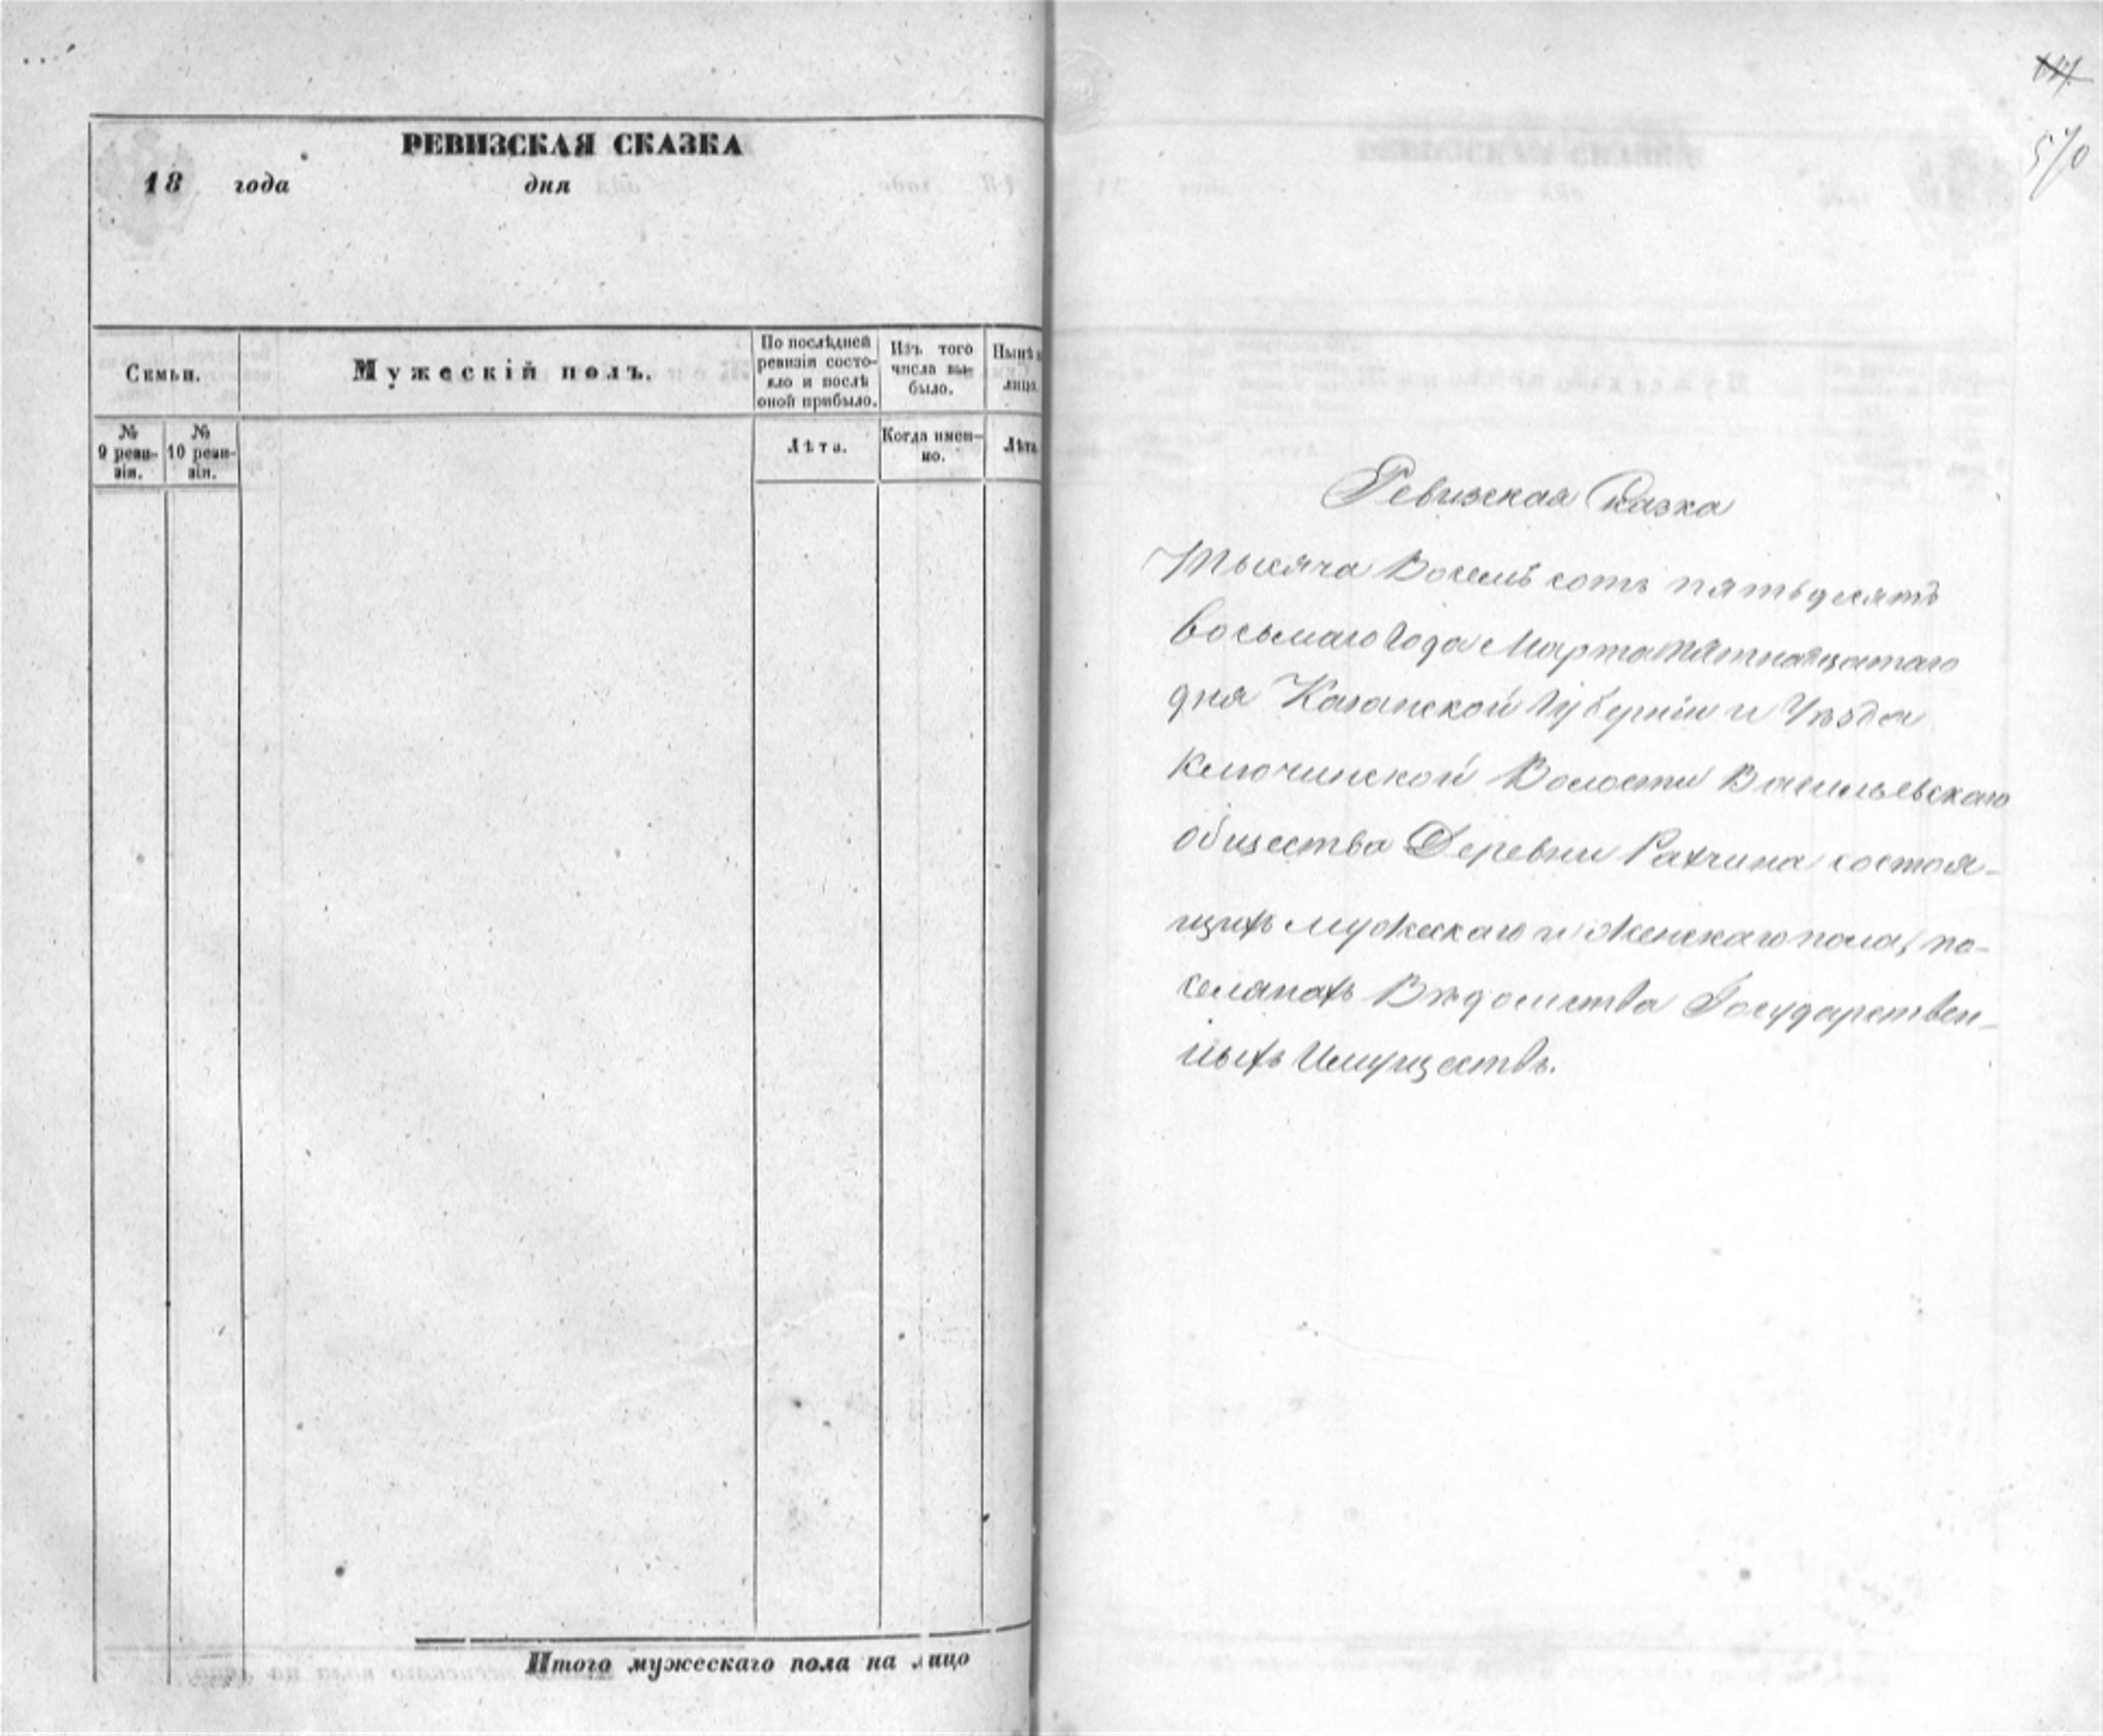 РЕВИЗСКАЯ СКАЗКА
18 года дня
Семьи.
Мужескій полъ.
По послѣдней
ревизіи состо-
яло и послѣ
оной прибыло.
Изъ того
числа вы-
было.
Нынѣ
лицо
№
9 реви-
зіи.
№
10 реви-
зіи.
Лѣта.
Когда имен-
но.
Лѣта
Итого мужескаго пола на лицо
570
Ревизская Сказка
Тысяча Восемь сотъ пятьдесятъ
восьмаго Года Марта пятнадцатаго
дня Казанской Губерніи и Уѣзда
Ключинской Волости Васильевскаго
общества Деревни Рахчина состоя-
щихъ мужескаго и женскаго пола, по-
селянахъ Вѣдомства Государствен-
ныхъ Имуществъ.